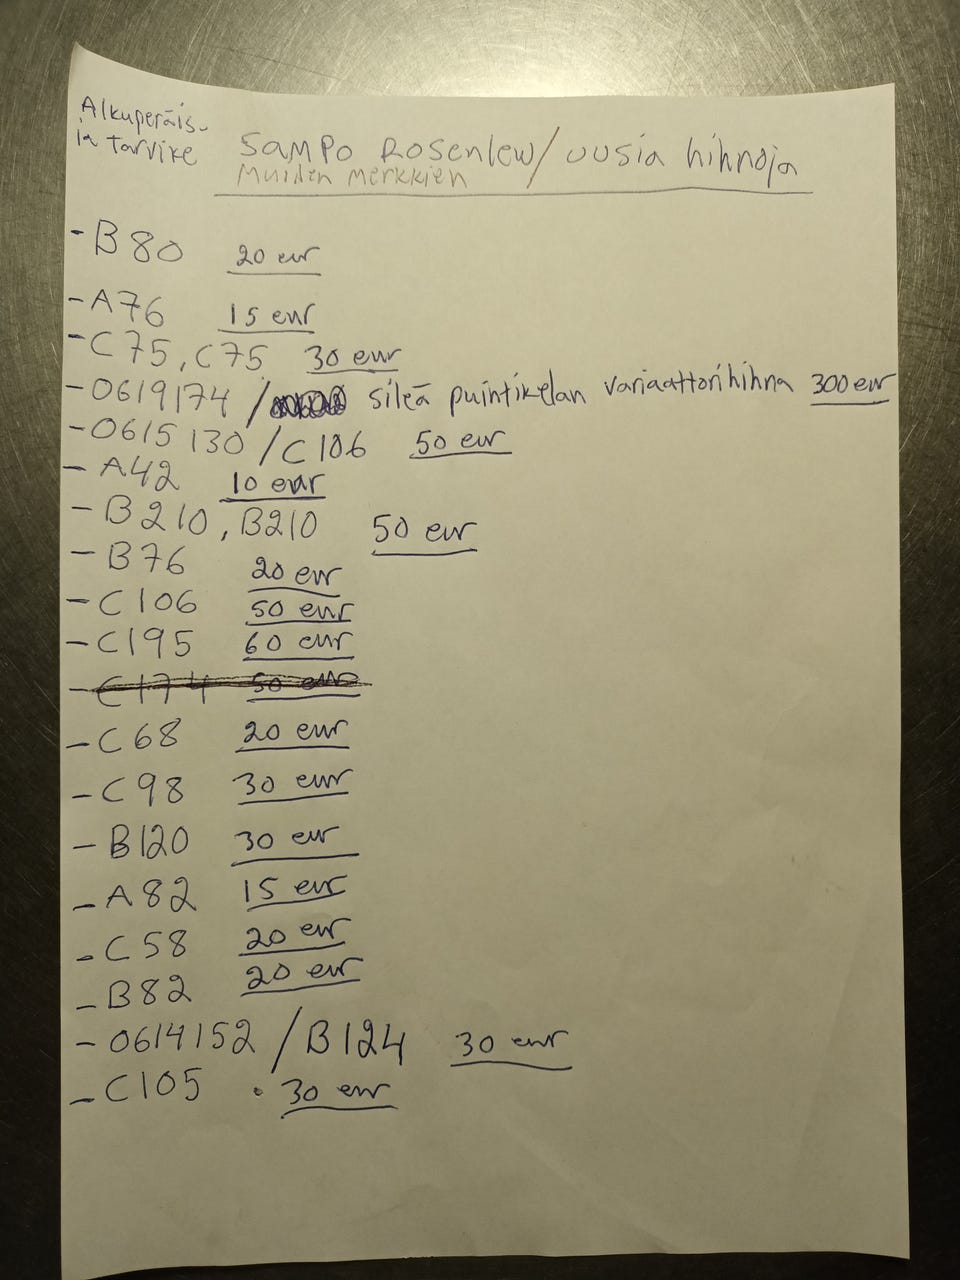 Alkuperäis-
ia tarvike
Sampo Rosenlew / uusia hihnoja
Muiden merkkien
- B80 20 eur
- A76 15 eur
- C75, C75 30 eur
- 0619174 / sileä puintikelan variaattorihihna 300 eur
- 0615130 / C106 50 eur
- A42 10 eur
- B210, B210 50 eur
- B76 20 eur
- C106 50 eur
- C195 60 eur
- C174 50 eur
- C68 20 eur
- C98 30 eur
- B120 30 eur
- A82 15 eur
- C58 20 eur
- B82 20 eur
- 0614152 / B124 30 eur
- C105 . 30 eur